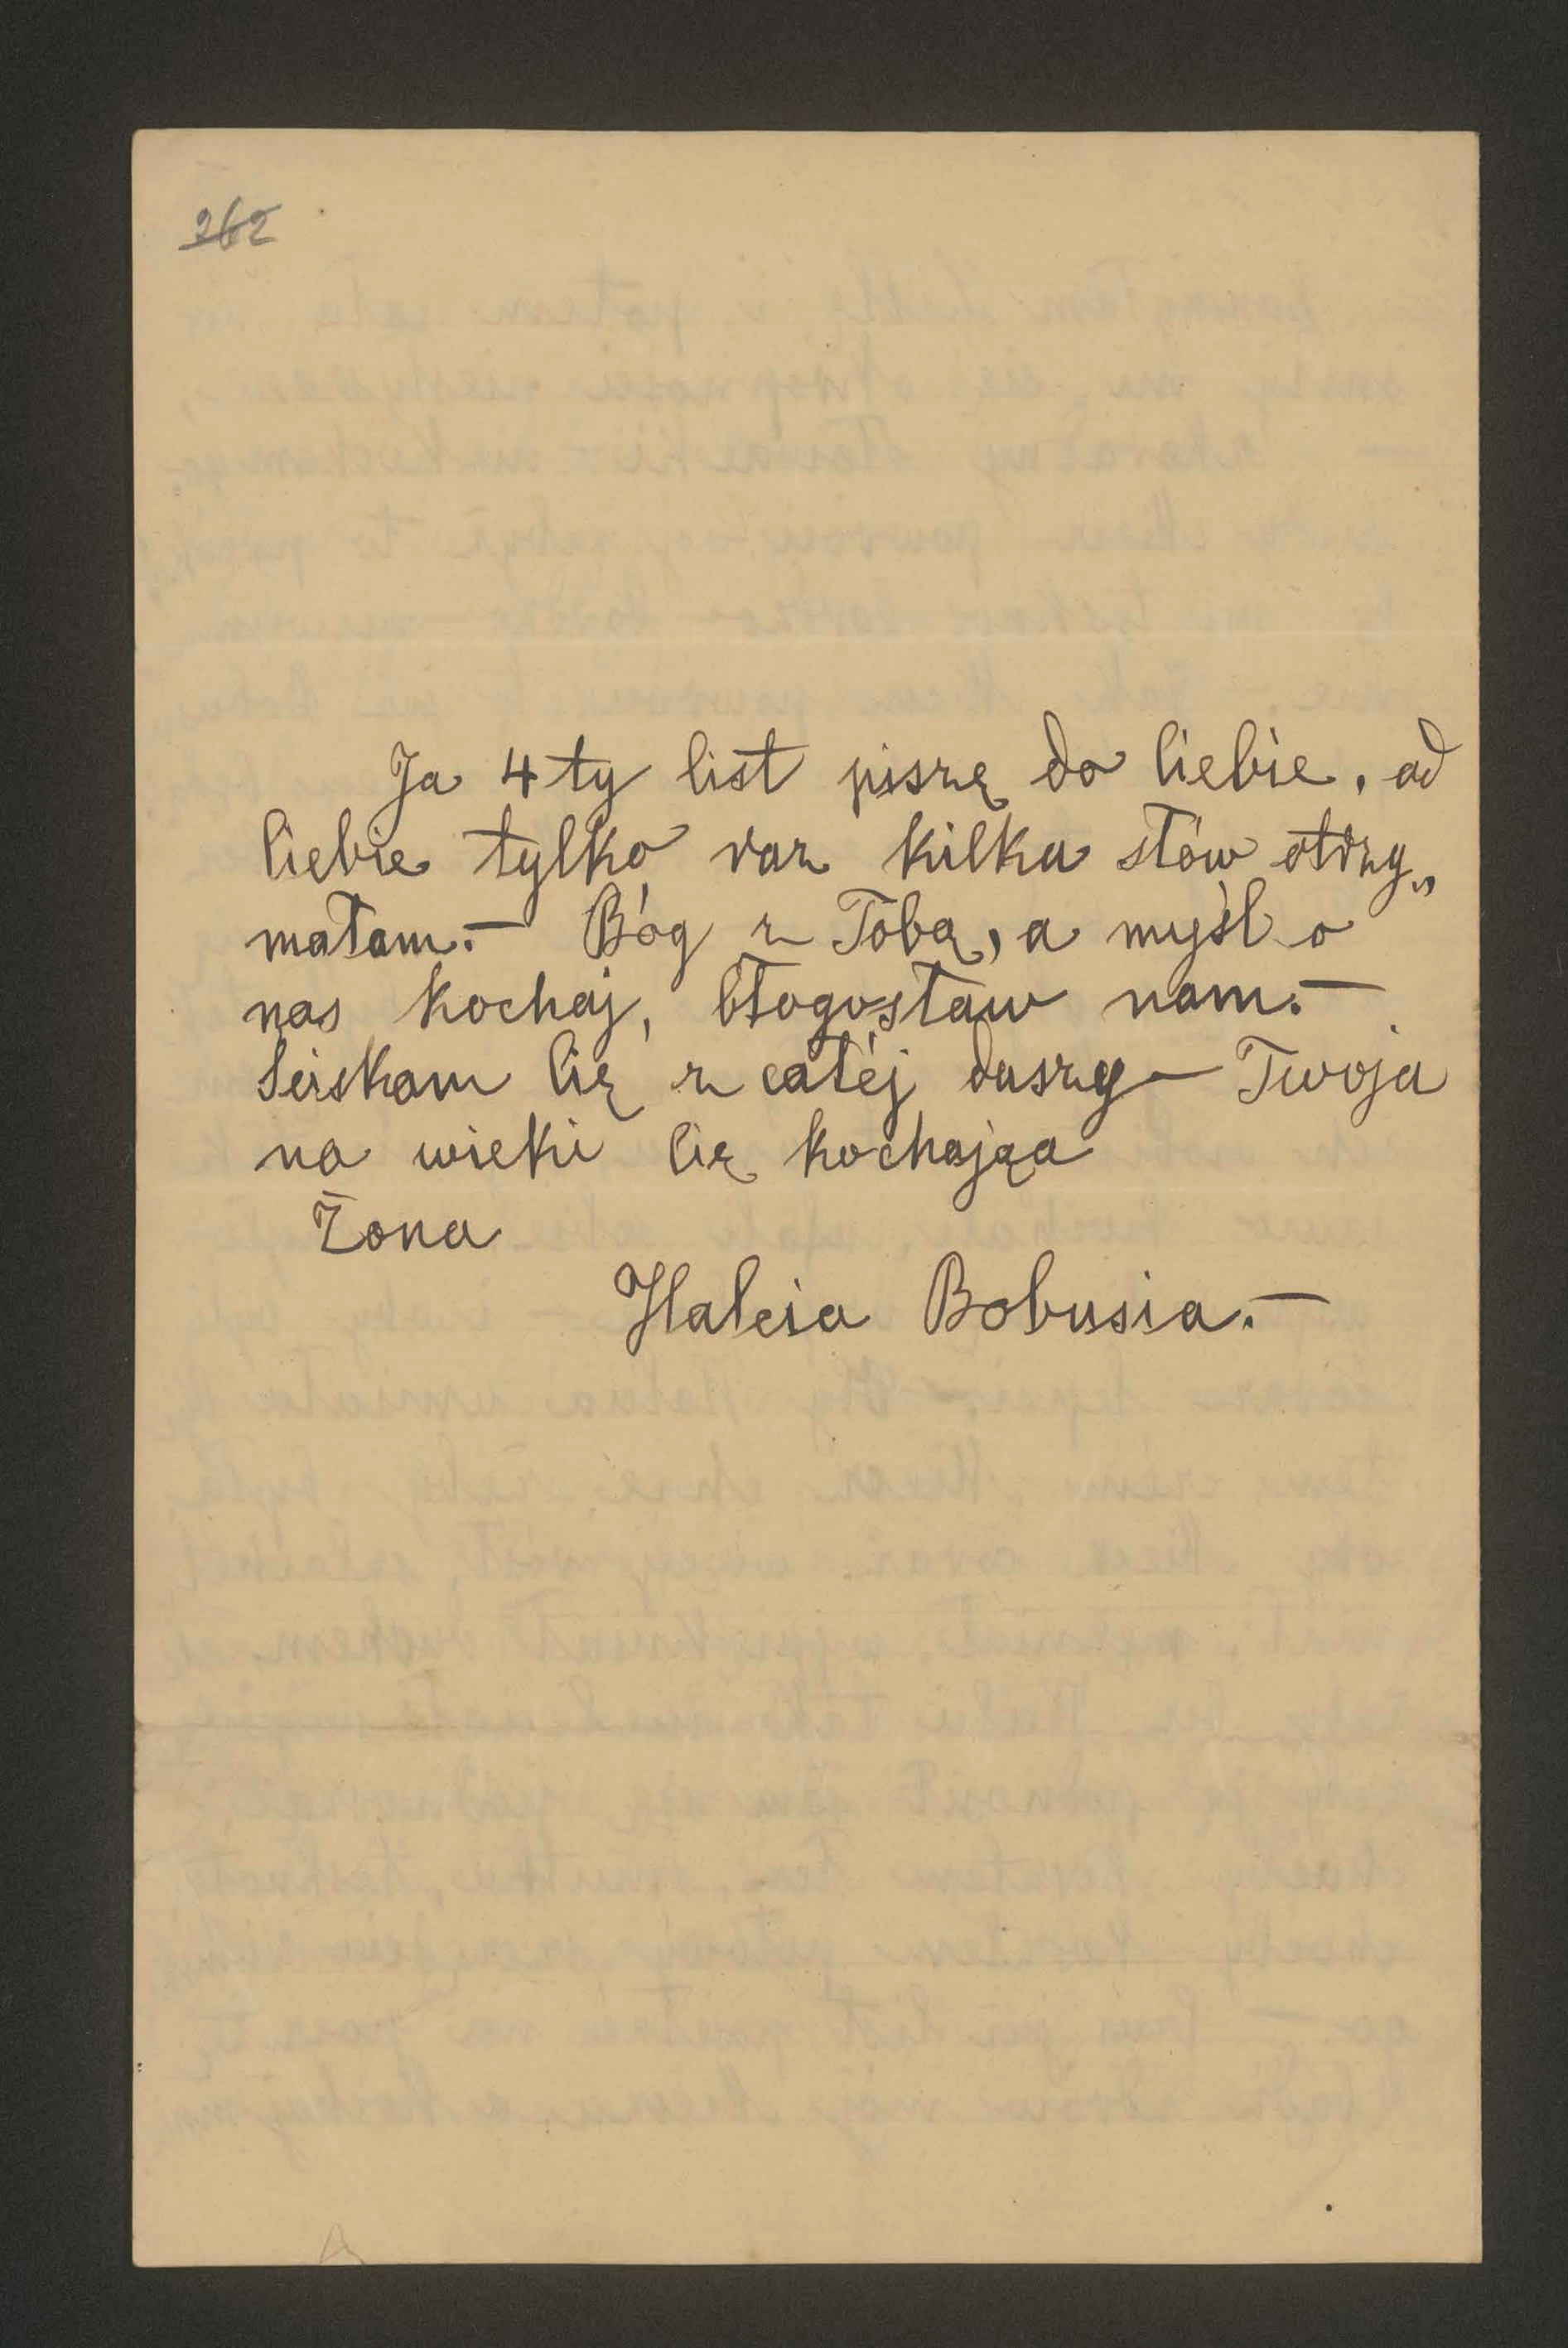 262
Ja 4ty list piszę do Ciebie, od
Ciebie tylko raz kilka słów otrzy„
małam.— Bóg z Tobą, a myśl o
nas kochaj, błogosław nam.—
Ściskam Cię z całéj duszy — Twoja
na wieki Cię kochająca
Żona
Halcia Bobusia.—